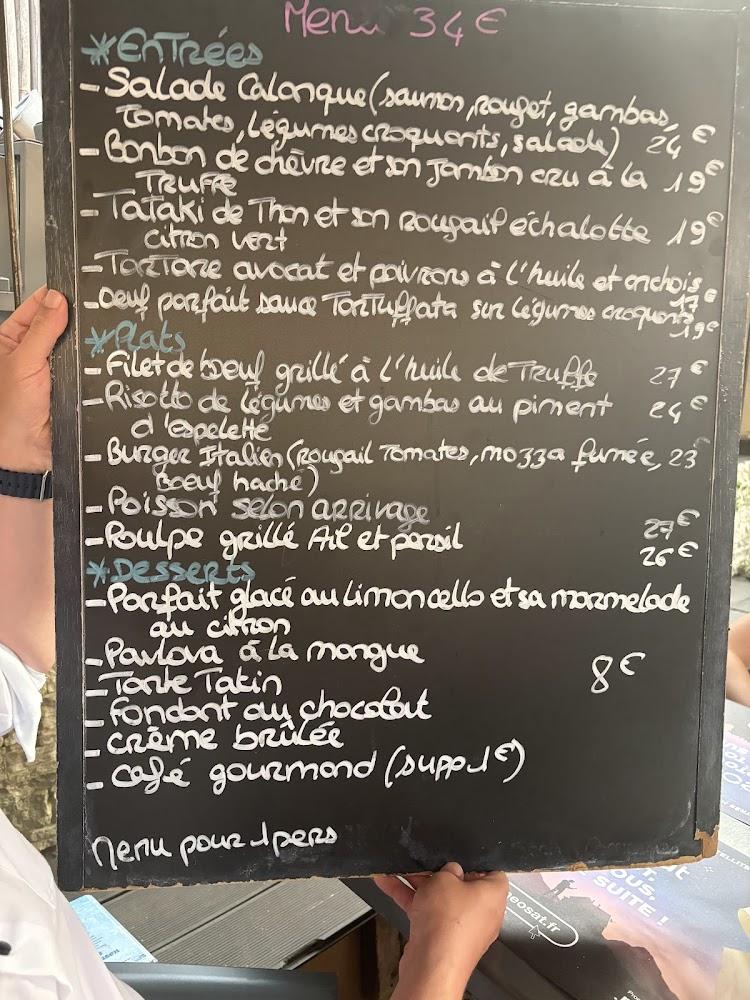 Menu 34€
*Entrées
- Salade Calanque (saumon, rouget, gambas,
Tomates, légumes croquants, salade) 24€
- Bonbon de chèvre et son Jambon cru à la 19€
Truffe
- Tataki de Thon et son rougail échalotte 19€
citron vert
- Tartare avocat et poivrons à l'huile et anchois
17€
- Oeuf parfait sauce Tartuffata sur légumes croquants
19€
*Plats
- Filet de boeuf grillé à l'huile de Truffe 27€
- Risotto de légumes et gambas au piment 24€
d'espelette
- Burger Italien (rougail Tomates, mozza fumée, 23
Boeuf haché)
- Poisson selon arrivage 27€
- Poulpe grillé Ail et persil 26€
*Desserts
- Parfait glacé au limoncello et sa marmelade
au citron
- Pavlova à la mangue 8€
- Tarte Tatin
- Fondant au chocolat
- crème brûlée
- café gourmand (supp 1€)
Menu pour 1 pers
SUITE !
eosat.fr